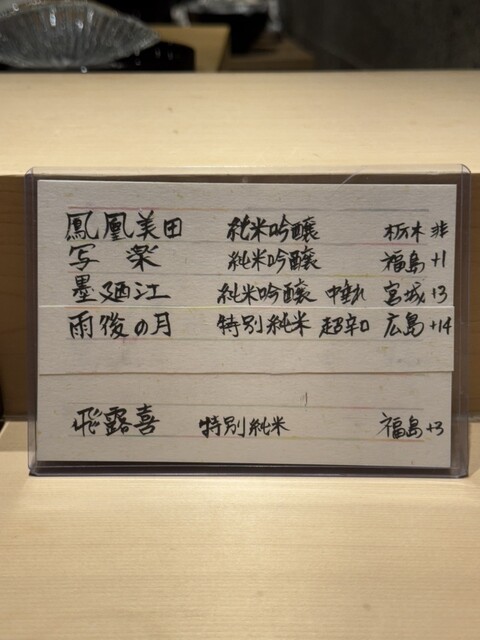 鳳凰美田 純米吟醸 栃木 非
写楽 純米吟醸 福島 +1
墨廼江 純米吟醸 中垂れ 宮城 +3
雨後の月 特別純米 超辛口 広島 +14
飛露喜 特別純米 福島 +3